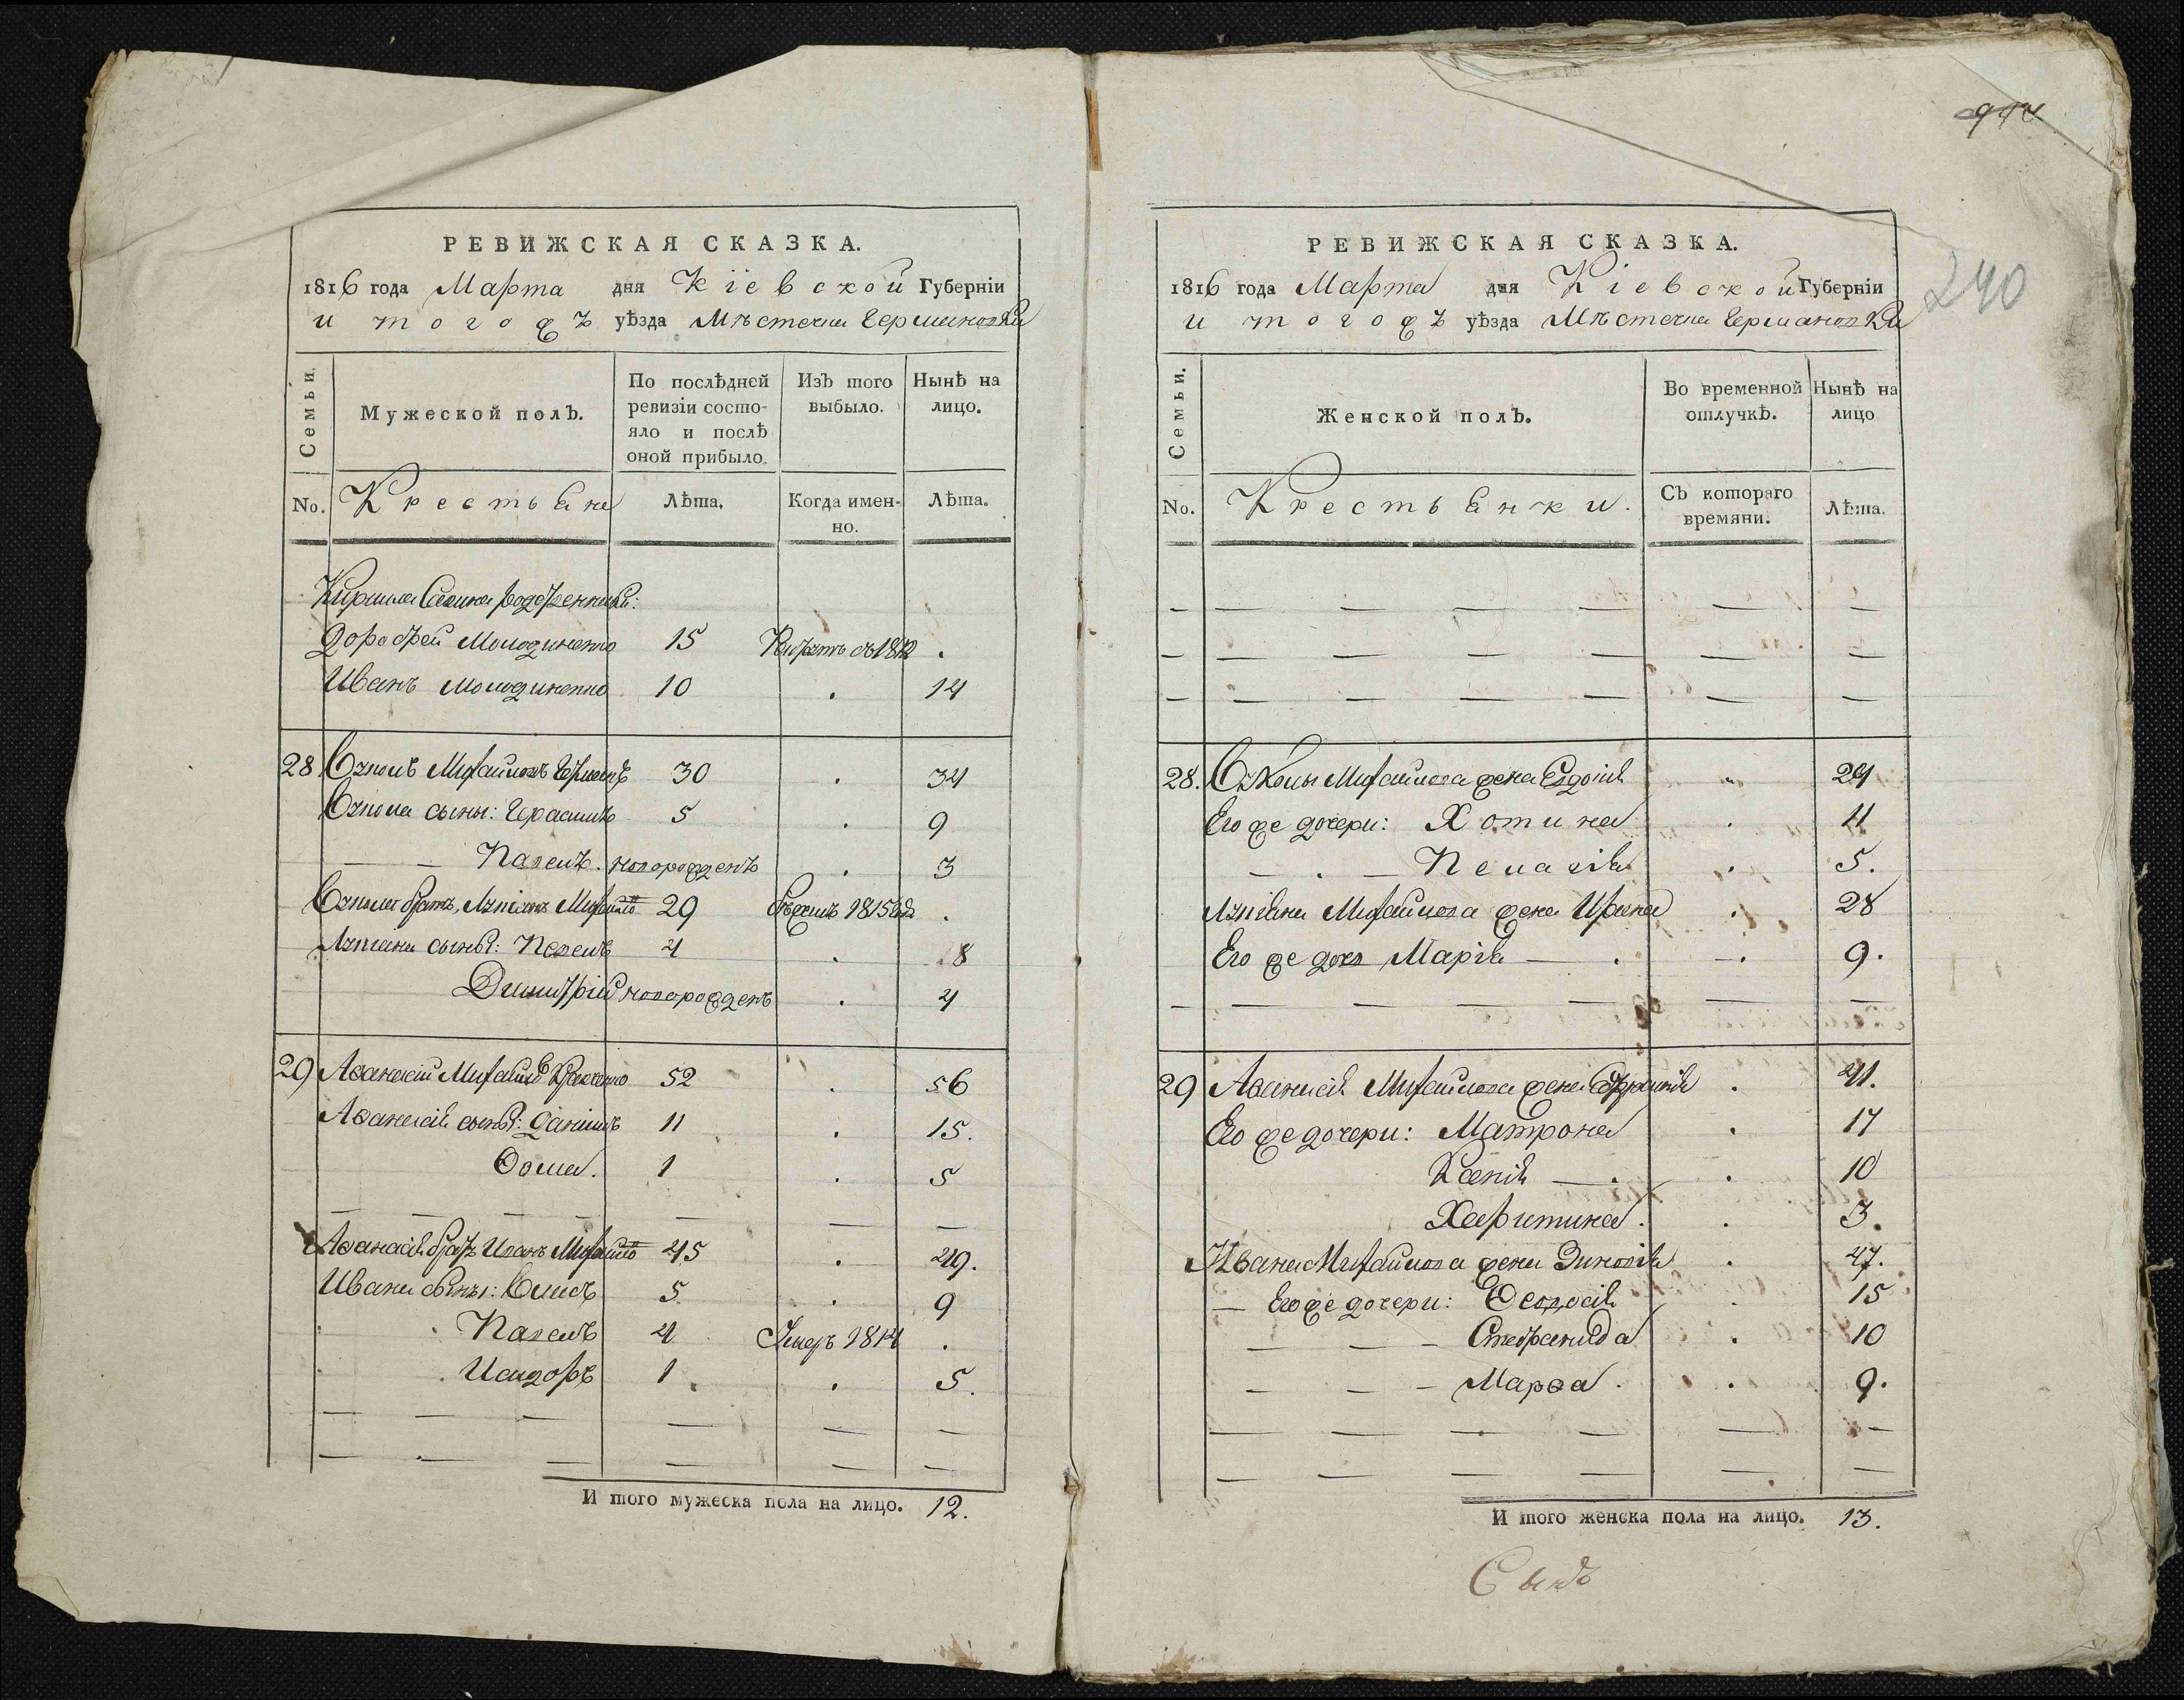 РЕВИЖСКАЯ СКАЗКА.
1816 года Марта дня Кіевской Губерніи
и тогожъ уѣзда Мѣстечка Германовки
Семьи.
Мужеской полъ.
По послѣдней ревизіи состо-
яло и послѣ оной прибыло.
Изъ того выбыло.
Нынѣ на лицо.
No. Крестьяне
Лѣта.
Когда имен-
но.
Лѣта.
Кирила
Дорофей Молодиченко 15 1812 .
Иванъ Молодиченко 10 . 14
28 Михайловъ 30 . 34
сыны: Герасимъ 5 . 9
— — Павелъ новорожденъ . 3
братъ, 29 1815 года .
сынъя: Павелъ 4 . 8
Димитрій новорожденъ . 4
29 Аѳанасій Михайловъ 52 . 56
Аѳанасія сынъя: Данилъ 11 . 15.
Ѳома. 1 . 5
Аѳанасія братъ Иванъ 45 . 49.
Ивана сыны: 5 . 9
Павелъ 4 Умеръ 1814 .
Исидоръ 1 . 5.
И того мужеска пола на лицо. 12.
990
240
РЕВИЖСКАЯ СКАЗКА.
1816 года Марта дня Кіевской Губерніи
и тогожъ уѣзда Мѣстечка Германовки
Семьи.
Женской полъ.
Во временной отлучкѣ.
Нынѣ на лицо
No. Крестьянки.
Съ котораго времяни.
Лѣта.
28. Михайлова жена Евдокія 29
Его же дочери: Хотина . 11
— . — Пелагія . 5.
Михайлова жена Ирина . 28
Его же дочь Марія — . — . 9.
29 Аѳанасія Михайлова жена . 41.
Его же дочери: Матрона . 17
Ксенія — . . 10
Харитина . . 3.
Ивана Михайлова жена Зиновія . 47.
— Его же дочери: Ѳеодосія . 15
— — — Стефанида . 10
— — — Марѳа . . 9.
И того женска пола на лицо. 13.